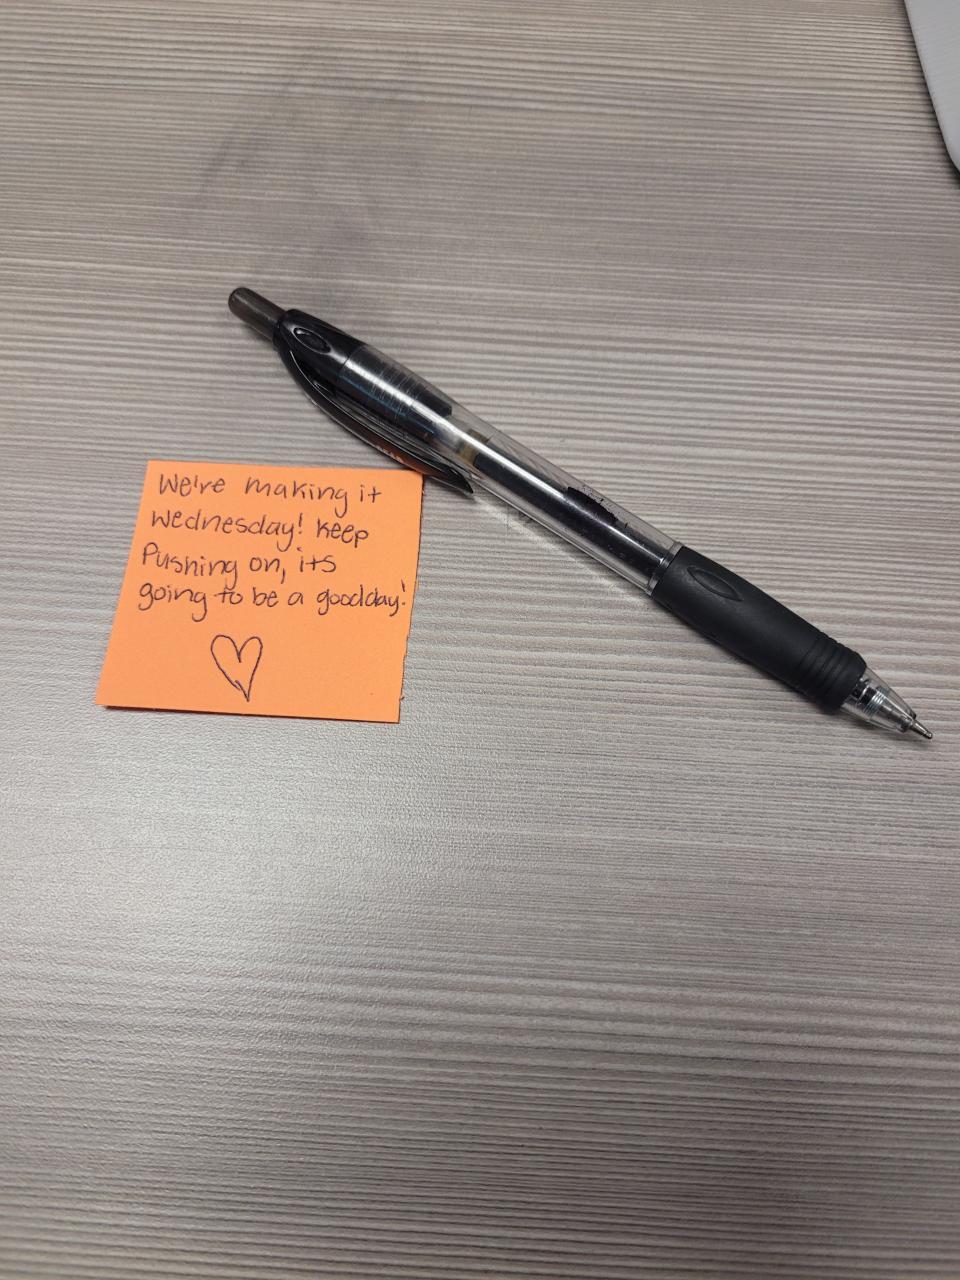 We're making it
Wednesday! Keep
Pushing on, its
going to be a good day!